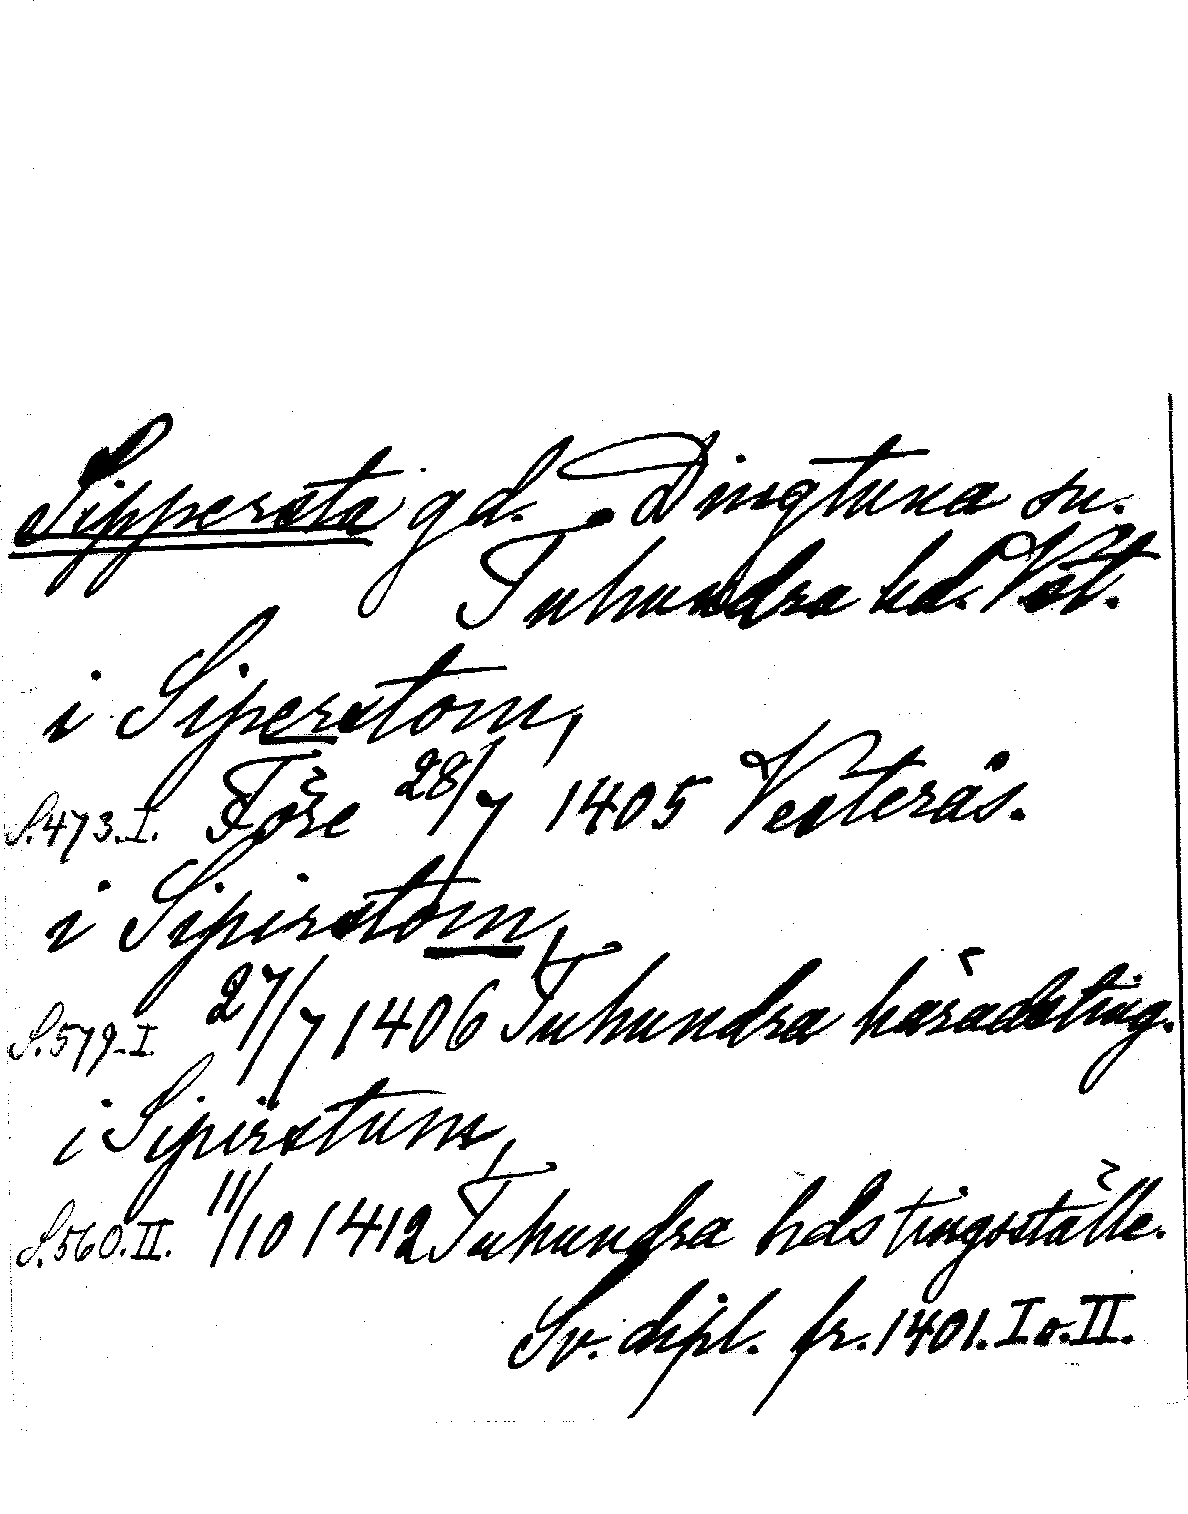 Sippersta gd. Dingtuna sn.
Tuhundra hd. Vst.
i Siperstom,
S. 473. I. Före 28/7 1405 Vesterås.
i Sipirstom,
S. 579. I 27/7 1406 Tuhundra häradsting.
i Sipirstum,
S. 560. II. 11/10 1412 Tuhundra hds tingsställe.
Sv. dipl. fr. 1401. I o. II.